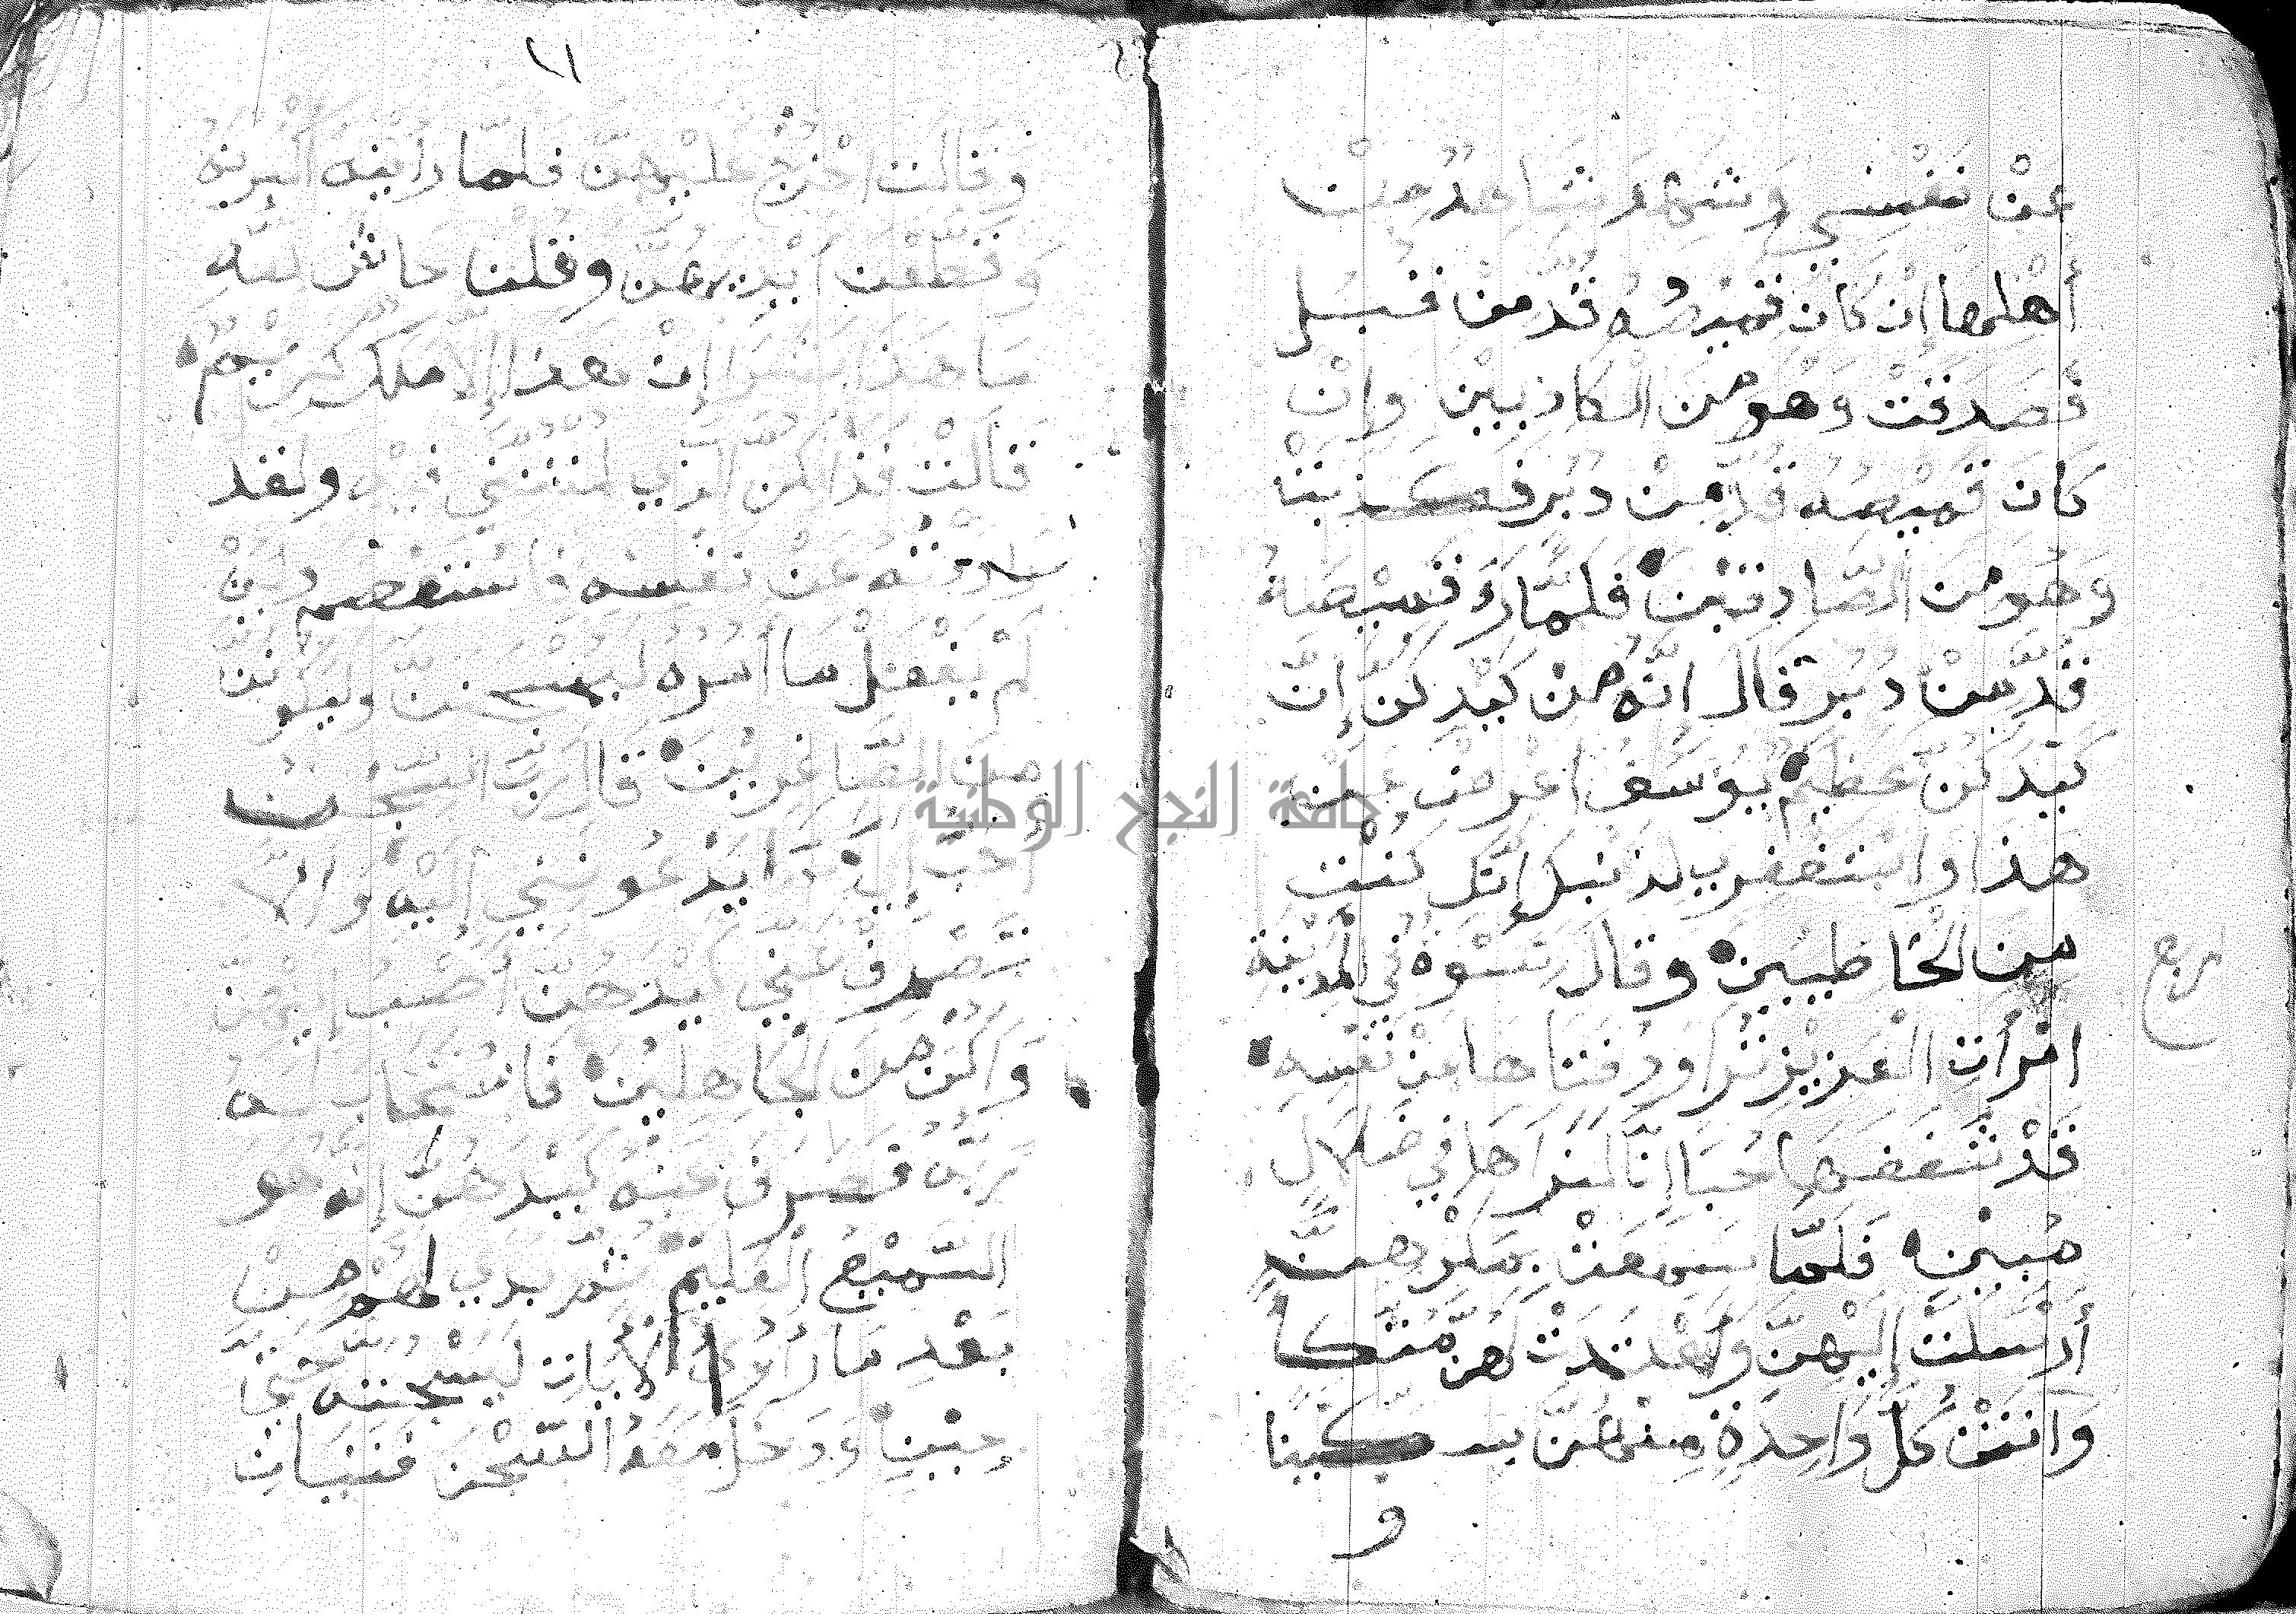 عَنْ نَفْسِي وَشَهِدَ شَاهِدٌ مِنْ
أَهْلِهَا إِنْ كَانَ قَمِيصُهُ قُدَّ مِنْ قُبُلٍ
فَصَدَقَتْ وَهُوَ مِنَ الْكَاذِبِيْنَ وَإِنْ
كَانَ قَمِيْصُهُ قُدَّ مِنْ دُبُرٍ فَكَذَبَتْ
وَهُوَ مِنَ الصَّادِقِيْنَ فَلَمَّا رَءَ قَمِيْصَهُ
قُدَّ مِنْ دُبُرٍ قَالَ إِنَّهُ مِنْ كَيْدِكُنَّ إِنَّ
كَيْدَكُنَّ عَظِيْمٌ يُوسُفُ اعْرِضْ عَنْ
هَذَا وَاسْتَغْفِرِي لِذَنْبِكِ إِنَّكِ كُنْتِ
مِنَ الْخَاطِيِيْنَ وَقَالَ نِسْوَةٌ فِي الْمَدِيْنَةِ
امْرَأَتُ الْعَزِيْزِ تُرَاوِدُ فَتَاهَا عَنْ نَفْسِهِ
قَدْ شَغَفَهَا حُبًّا إِنَّا لَنَرَاهَا فِي ضَلَالٍ
مُبِيْنٍ فَلَمَّا سَمِعَتْ بِمَكْرِهِنَّ
أَرْسَلَتْ إِلَيْهِنَّ وَأَعْتَدَتْ لَهُنَّ مُتَّكَأً
وَاتَتْ كُلَّ وَاحِدَةٍ مِنْهُنَّ سِكِّينًا
و
ربع
٢١
وَقَالَتِ اخْرُجْ عَلَيْهِنَّ فَلَمَّا رَأَيْنَهُ أَكْبَرْنَهُ
وَقَطَّعْنَ أَيْدِيَهُنَّ وَقُلْنَ حَاشَ لِلَّهِ
مَا هَذَا بَشَرًا إِنْ هَذَا إِلَّا مَلَكٌ كَرِيْمٌ
قَالَتْ فَذَالِكُنَّ الَّذِي لُمْتُنَّنِي فِيْهِ وَلَقَدْ
رَاوَدْتُهُ عَنْ نَفْسِهِ فَاسْتَعْصَمَ وَلَئِنْ
لَمْ يَفْعَلْ مَا أَمُرُهُ لَيُسْجَنَنَّ وَلَيَكُونَنَّ
مِنَ الصَّاغِرِيْنَ قَالَ رَبِّ السِّجْنُ
أَحَبُّ إِلَيَّ مِمَّا يَدْعُونَنِي إِلَيْهِ وَإِلَّا
تَصْرِفْ عَنِّي كَيْدَهُنَّ أَصْبُ إِلَيْهِنَّ
وَأَكُنْ مِنَ الْجَاهِلِيْنَ فَاسْتَجَابَ لَهُ
رَبُّهُ فَصَرَفَ عَنْهُ كَيْدَهُنَّ إِنَّهُ هُوَ
السَّمِيْعُ الْعَلِيْمُ ثُمَّ بَدَي لَهُمْ مِنْ
بَعْدِ مَا رَأَوُا الْأَيَاتِ لَيَسْجُنُنَّهُ حَتَّى
حِيْنٍ وَدَخَلَ مَعَهُ السِّجْنَ فَتَيَانِ
جامعة النجاح الوطنية